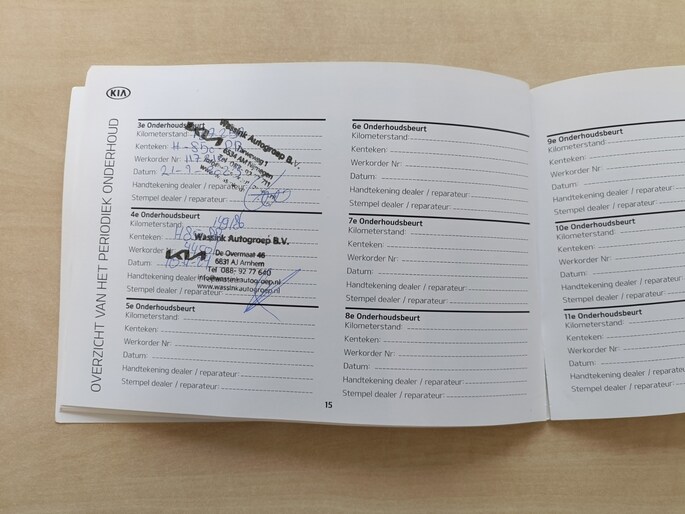 KIA
OVERZICHT VAN HET PERIODIEK ONDERHOUD
3e Onderhoudsbeurt
Kilometerstand:
Kenteken: H-850-
Werkorder Nr:
Datum: 21-1-
Handtekening dealer / reparateur:
Stempel dealer / reparateur:
Wassink Autogroep B.V.
6534 AM Nijmegen
4e Onderhoudsbeurt
Kilometerstand:
Kenteken:
Werkorder Nr:
Datum:
Handtekening dealer
Stempel dealer / reparateur:
Wassink Autogroep B.V.
KIA
De Overmaat 46
6831 AJ Arnhem
Tel 088- 92 77 640
info@wassinkautogroep.nl
www.wassinkautogroep.nl
5e Onderhoudsbeurt
Kilometerstand:
Kenteken:
Werkorder Nr:
Datum:
Handtekening dealer / reparateur:
Stempel dealer / reparateur:
15
6e Onderhoudsbeurt
Kilometerstand:
Kenteken:
Werkorder Nr:
Datum:
Handtekening dealer / reparateur:
Stempel dealer / reparateur:
7e Onderhoudsbeurt
Kilometerstand:
Kenteken:
Werkorder Nr:
Datum:
Handtekening dealer / reparateur:
Stempel dealer / reparateur:
8e Onderhoudsbeurt
Kilometerstand:
Kenteken:
Werkorder Nr:
Datum:
Handtekening dealer / reparateur:
Stempel dealer / reparateur:
9e Onderhoudsbeurt
Kilometerstand:
Kenteken:
Werkorder Nr:
Datum:
Handtekening dealer / rep
Stempel dealer / reparate
10e Onderhoudsbeurt
Kilometerstand:
Kenteken:
Werkorder Nr:
Datum:
Handtekening dealer / re
Stempel dealer / reparat
11e Onderhoudsbeurt
Kilometerstand:
Kenteken:
Werkorder Nr:
Datum:
Handtekening dealer / r
Stempel dealer / repara